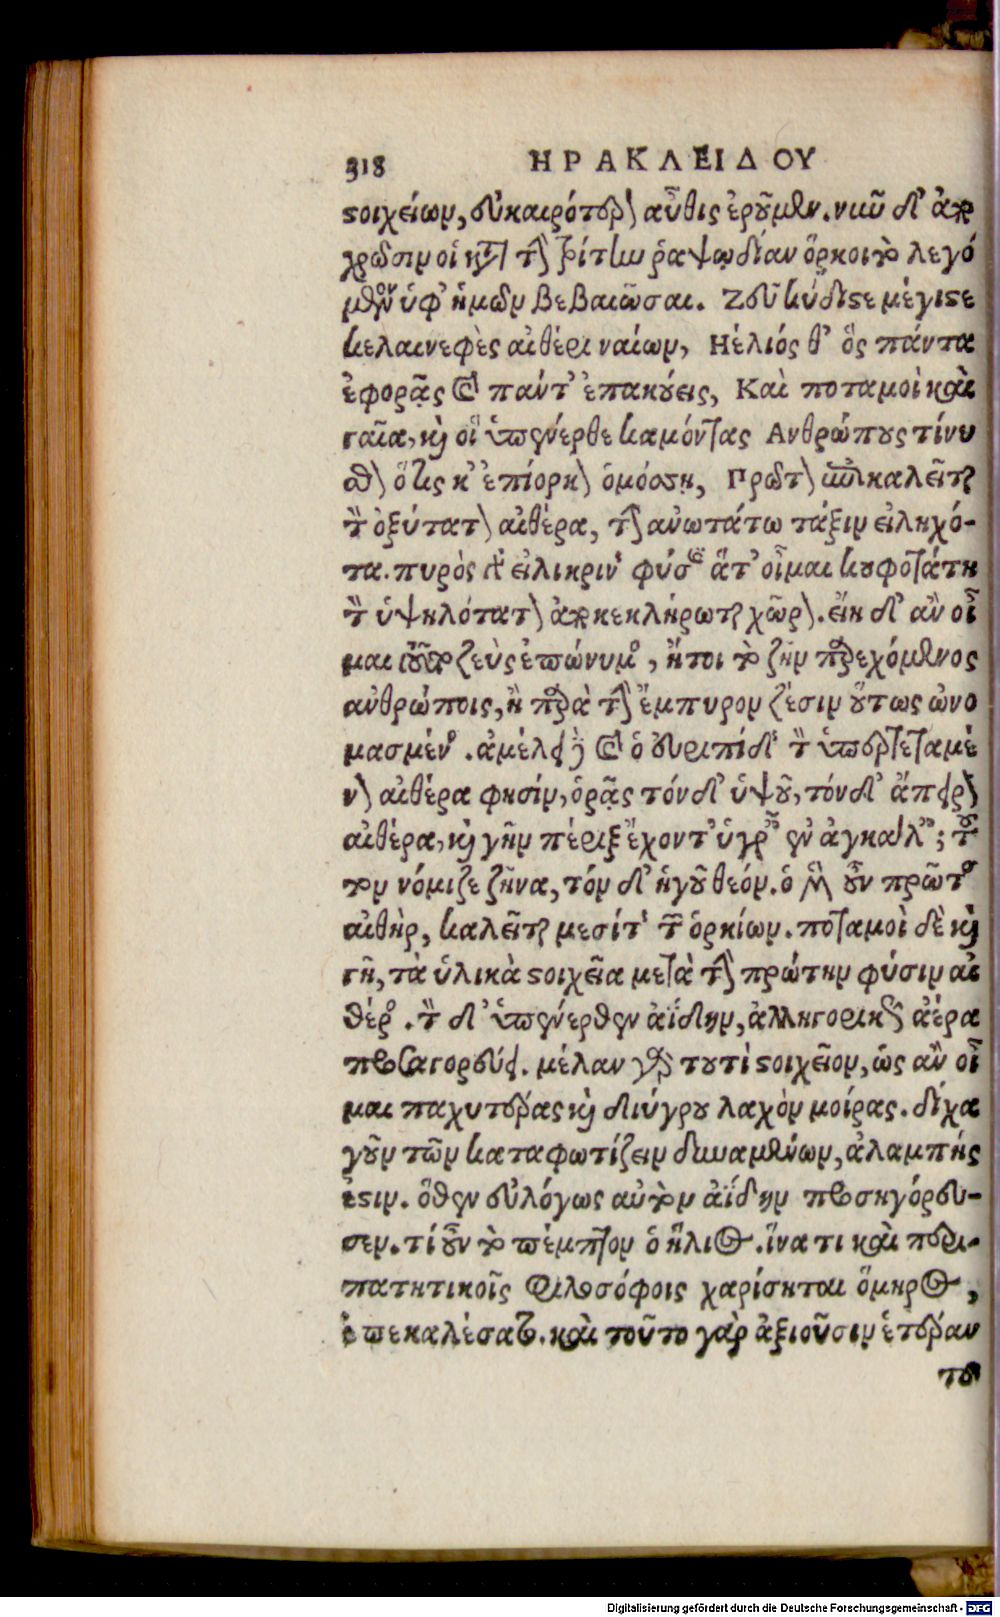 318 ΗΡΑΚΛΕΙΔΟΥ
στοιχείων, εὐκαιρότερον αὖθις ἐροῦμεν. νυῦ δ' ἀρ
χοῦσιν οἱ κατὰ τὴν τρίτην ῥαψῳδίαν ὅρκοι τὸ λεγό
μενον ὑφ' ἡμῶν βεβαιῶσαι. Ζεῦ κύδιστε μέγιστε
κελαινεφὲς αἰθέρι ναίων, Ηέλιός θ' ὃς πάντα
ἐφορᾷς καὶ πάντ' ἐπακούεις, Καὶ ποταμοὶ καὶ
γαῖα, καὶ οἳ ὑπένερθε καμόντας Ανθρώπους τίνυ
σθον ὅτις κ' ἐπίορκον ὀμόσσῃ, Πρῶτον ἐπικαλεῖται
τὸν ὀξύτατον αἰθέρα, τὴν ἀνωτάτω τάξιν εἰληχό-
τα. πυρὸς γὰρ εἰλικρινὴς φύσις ἅτ' οἶμαι κουφοτάτη
τὸν ὑψηλότατον ἀποκεκλήρωται χῶρον. εἴη δ' ἂν οἶ
μαι τοῦτο ζεὺς ἐπώνυμος, ἤτοι τὸ ζῆν παρεχόμενος
ἀνθρώποις, ἢ παρὰ τὴν ἔμπυρον ζέσιν οὕτως ὠνο
μασμένος. ἀμέλει γὰρ καὶ ὁ Εὐριπίδης τὸν ὑπερτεταμέ
νον αἰθέρα φησίν, ὁρᾷς τόνδ' ὑψοῦ, τόνδ' ἄπειρον
αἰθέρα, καὶ γῆν πέριξ ἔχοντ' ὑγραῖς ἐν ἀγκάλαις; τοῦ
τον νόμιζε ζῆνα, τόν δ' ἡγοῦ θεόν. ὁ μὲν οὖν πρῶτος
αἰθὴρ, καλεῖται μεσίτης τῶν ὁρκίων. ποταμοὶ δὲ καὶ
γῆ, τὰ ὑλικὰ στοιχεῖα μετὰ τὴν πρώτην φύσιν αἰ
θέρος. τὸν δ' ὑπένερθεν ἀΐδην, ἀλληγορικῶς ἀέρα
προσαγορεύει. μέλαν γὰρ τουτὶ στοιχεῖον, ὡς ἂν οἶ
μαι παχυτέρας καὶ διύγρου λαχὸν μοίρας. δίχα
γοῦν τῶν καταφωτίζειν δυναμένων, ἀλαμπής
ἐστιν. ὅθεν εὐλόγως αὐτὸν ἀΐδην προσηγόρευ-
σεν. τί οὖν τὸ πέμπτον ὁ ἥλιος. ἵνα τι καὶ περι-
πατητικοῖς φιλοσόφοις χαρίσηται ὅμηρος,
ἐπεκαλέσατο. καὶ τοῦτο γὰρ ἀξιοῦσιν ἑτέραν
τοῦ
Digitalisierung gefördert durch die Deutsche Forschungsgemeinschaft - DFG